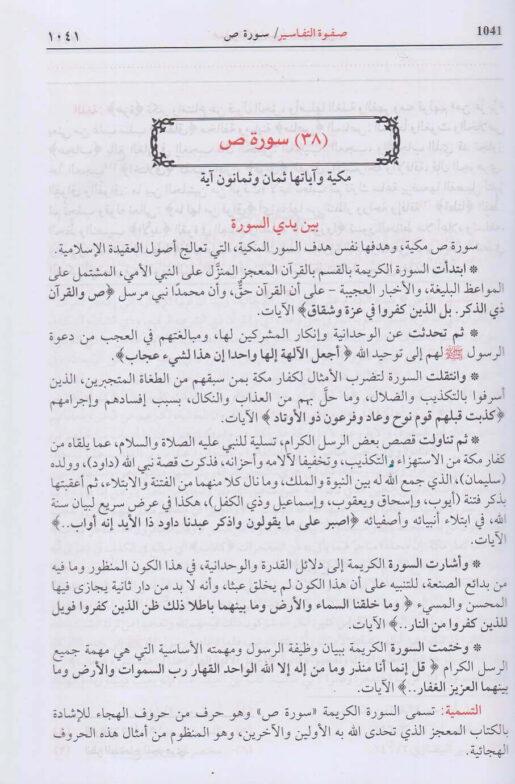 1041 صفوة التفاسير/ سورة ص ١٠٤١
(٣٨) سورة ص
مكية وآياتها ثمان وثمانون آية
بين يدي السورة
سورة ص مكية، وهدفها نفس هدف السور المكية، التي تعالج أصول العقيدة الإسلامية.
* ابتدأت السورة الكريمة بالقسم بالقرآن المعجز المنزَّل على النبي الأمي، المشتمل على
المواعظ البليغة، والأخبار العجيبة – على أن القرآن حقٌّ، وأن محمدًا نبي مرسل ﴿ص والقرآن
ذي الذكر. بل الذين كفروا في عزة وشقاق﴾ الآيات.
* ثم تحدثت عن الوحدانية وإنكار المشركين لها، ومبالغتهم في العجب من دعوة
الرسول ﷺ لهم إلى توحيد الله ﴿ أجعل الآلهة إلها واحدا إن هذا لشيء عجاب﴾.
* وانتقلت السورة لتضرب الأمثال لكفار مكة بمن سبقهم من الطغاة المتجبرين، الذين
أسرفوا بالتكذيب والضلال، وما حلَّ بهم من العذاب والنكال، بسبب إفسادهم وإجرامهم
﴿كذبت قبلهم قوم نوح وعاد وفرعون ذو الأوتاد﴾ الآيات.
* ثم تناولت قصص بعض الرسل الكرام، تسلية للنبي عليه الصلاة والسلام، عما يلقاه من
كفار مكة من الاستهزاء والتكذيب، وتخفيفا لآلامه وأحزانه، فذكرت قصة نبي الله (داود)، وولده
(سليمان)، الذي جمع الله له بين النبوة والملك، وما نال كلا منهما من الفتنة والابتلاء، ثم أعقبتها
بذكر فتنة (أيوب، وإسحاق ويعقوب، وإسماعيل وذي الكفل)، هكذا في عرض سريع لبيان سنة
الله، في ابتلاء أنبيائه وأصفيائه ﴿اصبر على ما يقولون واذكر عبدنا داود ذا الأيد إنه أواب..﴾
الآيات.
* وأشارت السورة الكريمة إلى دلائل القدرة والوحدانية، في هذا الكون المنظور وما فيه
من بدائع الصنعة، للتنبيه على أن هذا الكون لم يخلق عبثا، وأنه لا بد من دار ثانية يجازى فيها
المحسن والمسيء ﴿ وما خلقنا السماء والأرض وما بينهما باطلا ذلك ظن الذين كفروا فويل
للذين كفروا من النار..﴾ الآيات.
* وختمت السورة الكريمة ببيان وظيفة الرسول ومهمته الأساسية التي هي مهمة جميع
الرسل الكرام ﴿ قل إنما أنا منذر وما من إله إلا الله الواحد القهار رب السموات والأرض وما
بينهما العزيز الغفار..﴾ الآيات.
التسمية: تسمى السورة الكريمة «سورة ص» وهو حرف من حروف الهجاء للإشادة
بالكتاب المعجز الذي تحدى الله به الأولين والآخرين، وهو المنظوم من أمثال هذه الحروف
الهجائية.